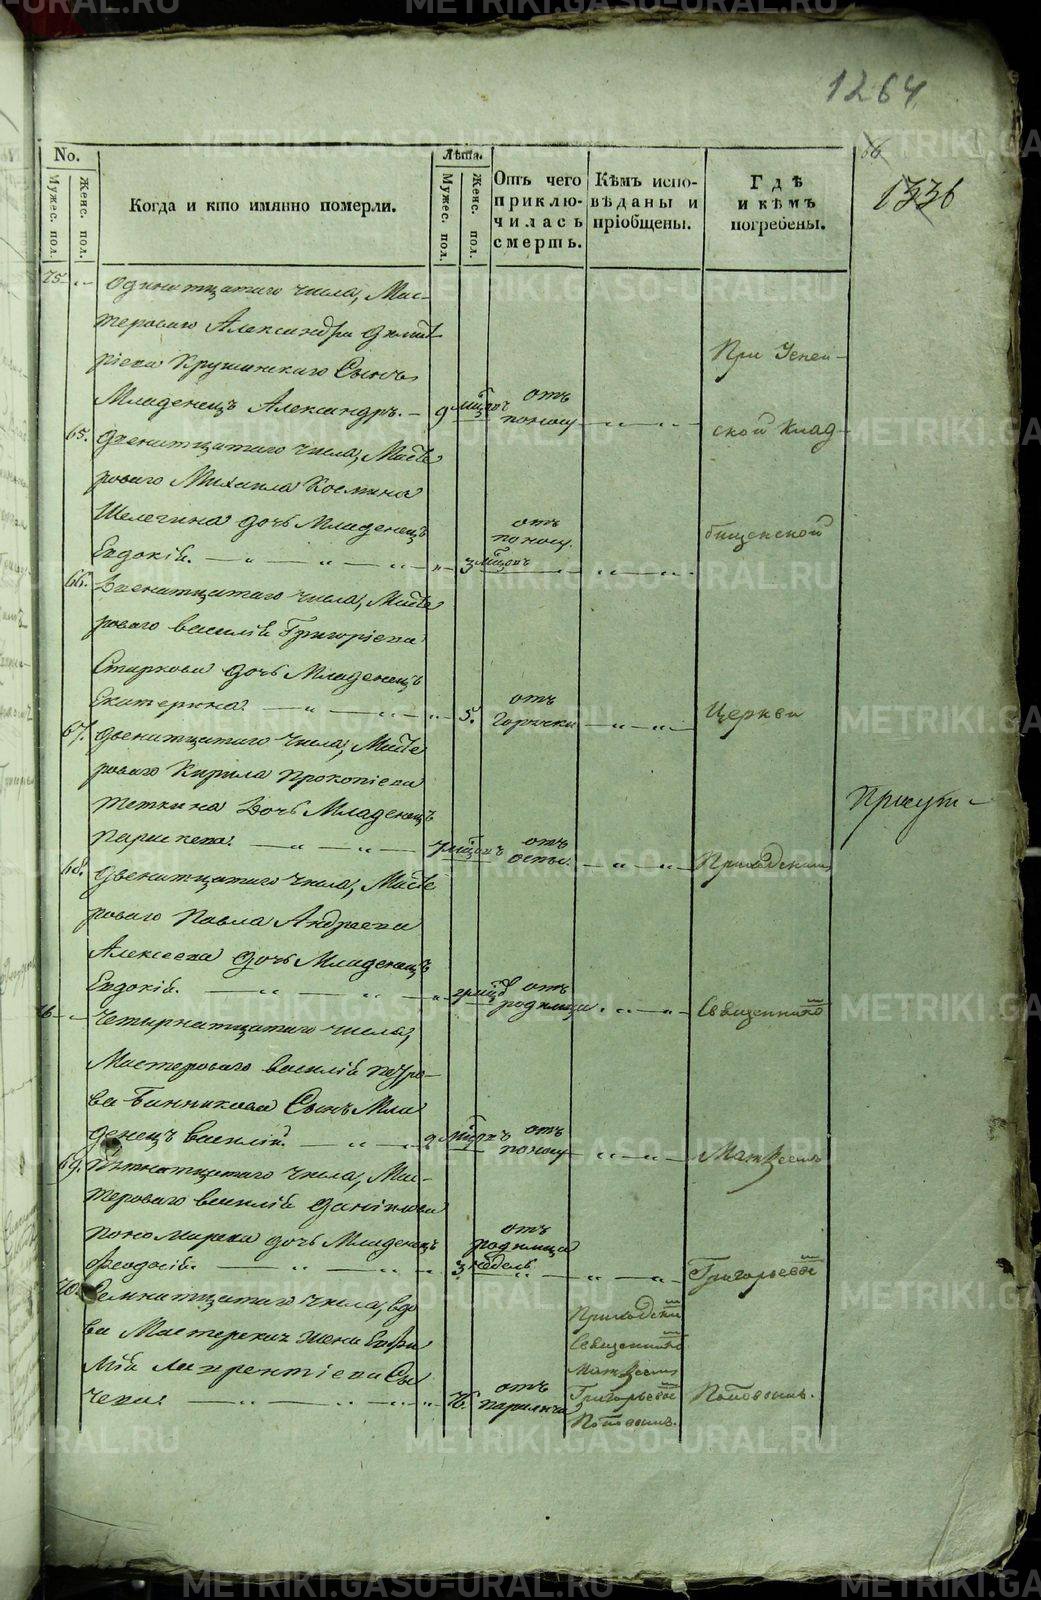 1264
66
1336
No.
Лѣта.
Мужес. пол.
Женс. пол.
Когда и кто имянно померли.
Мужес. пол.
Женс. пол.
Отъ чего приклю-чилась смерть.
Кѣмъ испо-вѣданы и пріобщены.
Гдѣ и кѣмъ погребены.
75.
Одинатцатаго числа, Мас-
тероваго Александра Дмит
ріева Крушинскаго Сынъ
Младенецъ Александръ. — 9 мцовъ отъ поносу
При Успен-
ской Клад-
65. Двенатцатаго числа, Масте
роваго Михаила Космина
Шелегина дочь Младенецъ
Евдокія. 3 мцовъ отъ поносу.
бищенской
66. Двенатцатаго числа, Масте
роваго Василія Григоріева
Старкова дочь Младенецъ
Екатерина. 5. отъ горячки
Церкви
67. Двенатцатаго числа, Масте
роваго Кирила Прокопіева
Теткина Дочь Младенецъ
Параскева. 7 мцовъ отъ оспы.
Приходскимъ
68. Двенатцатаго числа, Масте
роваго Павла Андреева
Алексеева дочь Младенецъ
Евдокія. отъ родимца
Священникомъ
76 Четырнатцатаго числа,
Мастероваго Василія Петро-
ва Банникова Сынъ Мла
денецъ Василій. 9 мцовъ отъ поносу
Матвеемъ
69. Пятнатцатаго числа, Мас-
тероваго Василія Даніилова
Пономарева дочь Младенецъ
Феодосія. 3 недель отъ родимца
Григорьевымъ
70. Семнатцатаго числа, вдо
ва Мастерских жена Евфи
мія Лаврентіева Сы
чева. 76. отъ паралича
Приходскимъ
Священникомъ
Матвеемъ
Григорьевымъ
Поповымъ.
Поповымъ.
METRIKI.GASO-URAL.RU